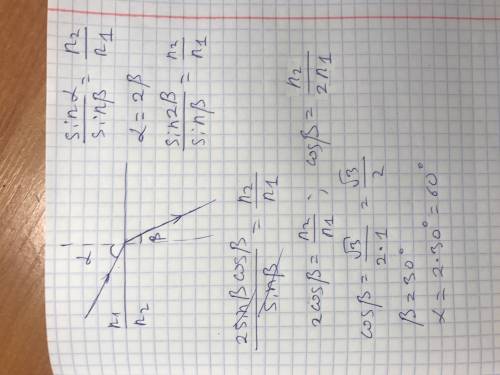 α
n1
n2
β
sinα/sinβ = n2/n1
α = 2β
sin2β/sinβ = n2/n1
2sinβcosβ/sinβ = n2/n1
2cosβ = n2/n1; cosβ = n2/2n1
cosβ = √3/2·1 = √3/2
β = 30°
α = 2·30° = 60°